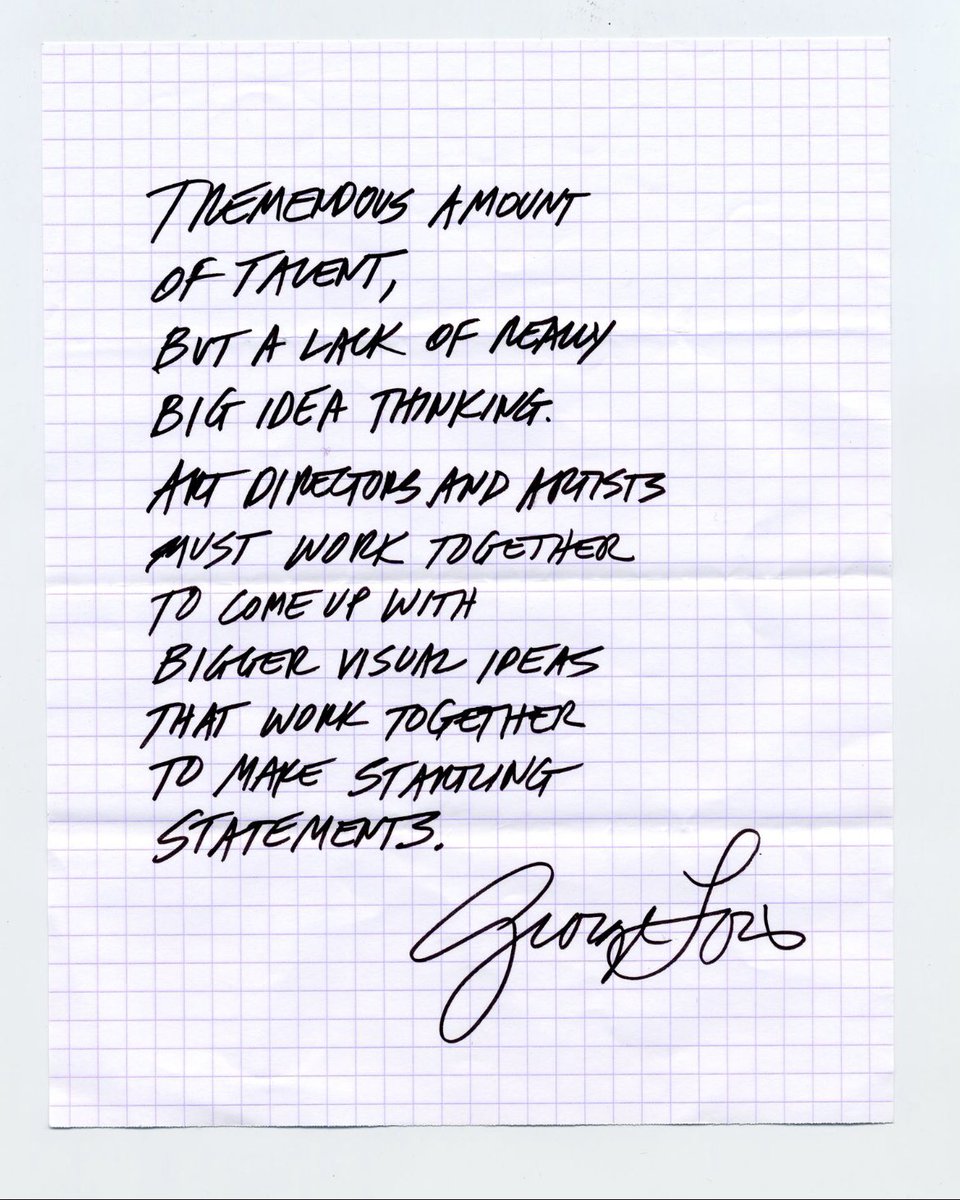 TREMENDOUS AMOUNT
OF TALENT,
BUT A LACK OF REALLY
BIG IDEA THINKING.
ART DIRECTORS AND ARTISTS
MUST WORK TOGETHER
TO COME UP WITH
BIGGER VISUAL IDEAS
THAT WORK TOGETHER
TO MAKE STARTLING
STATEMENTS.
George Lois